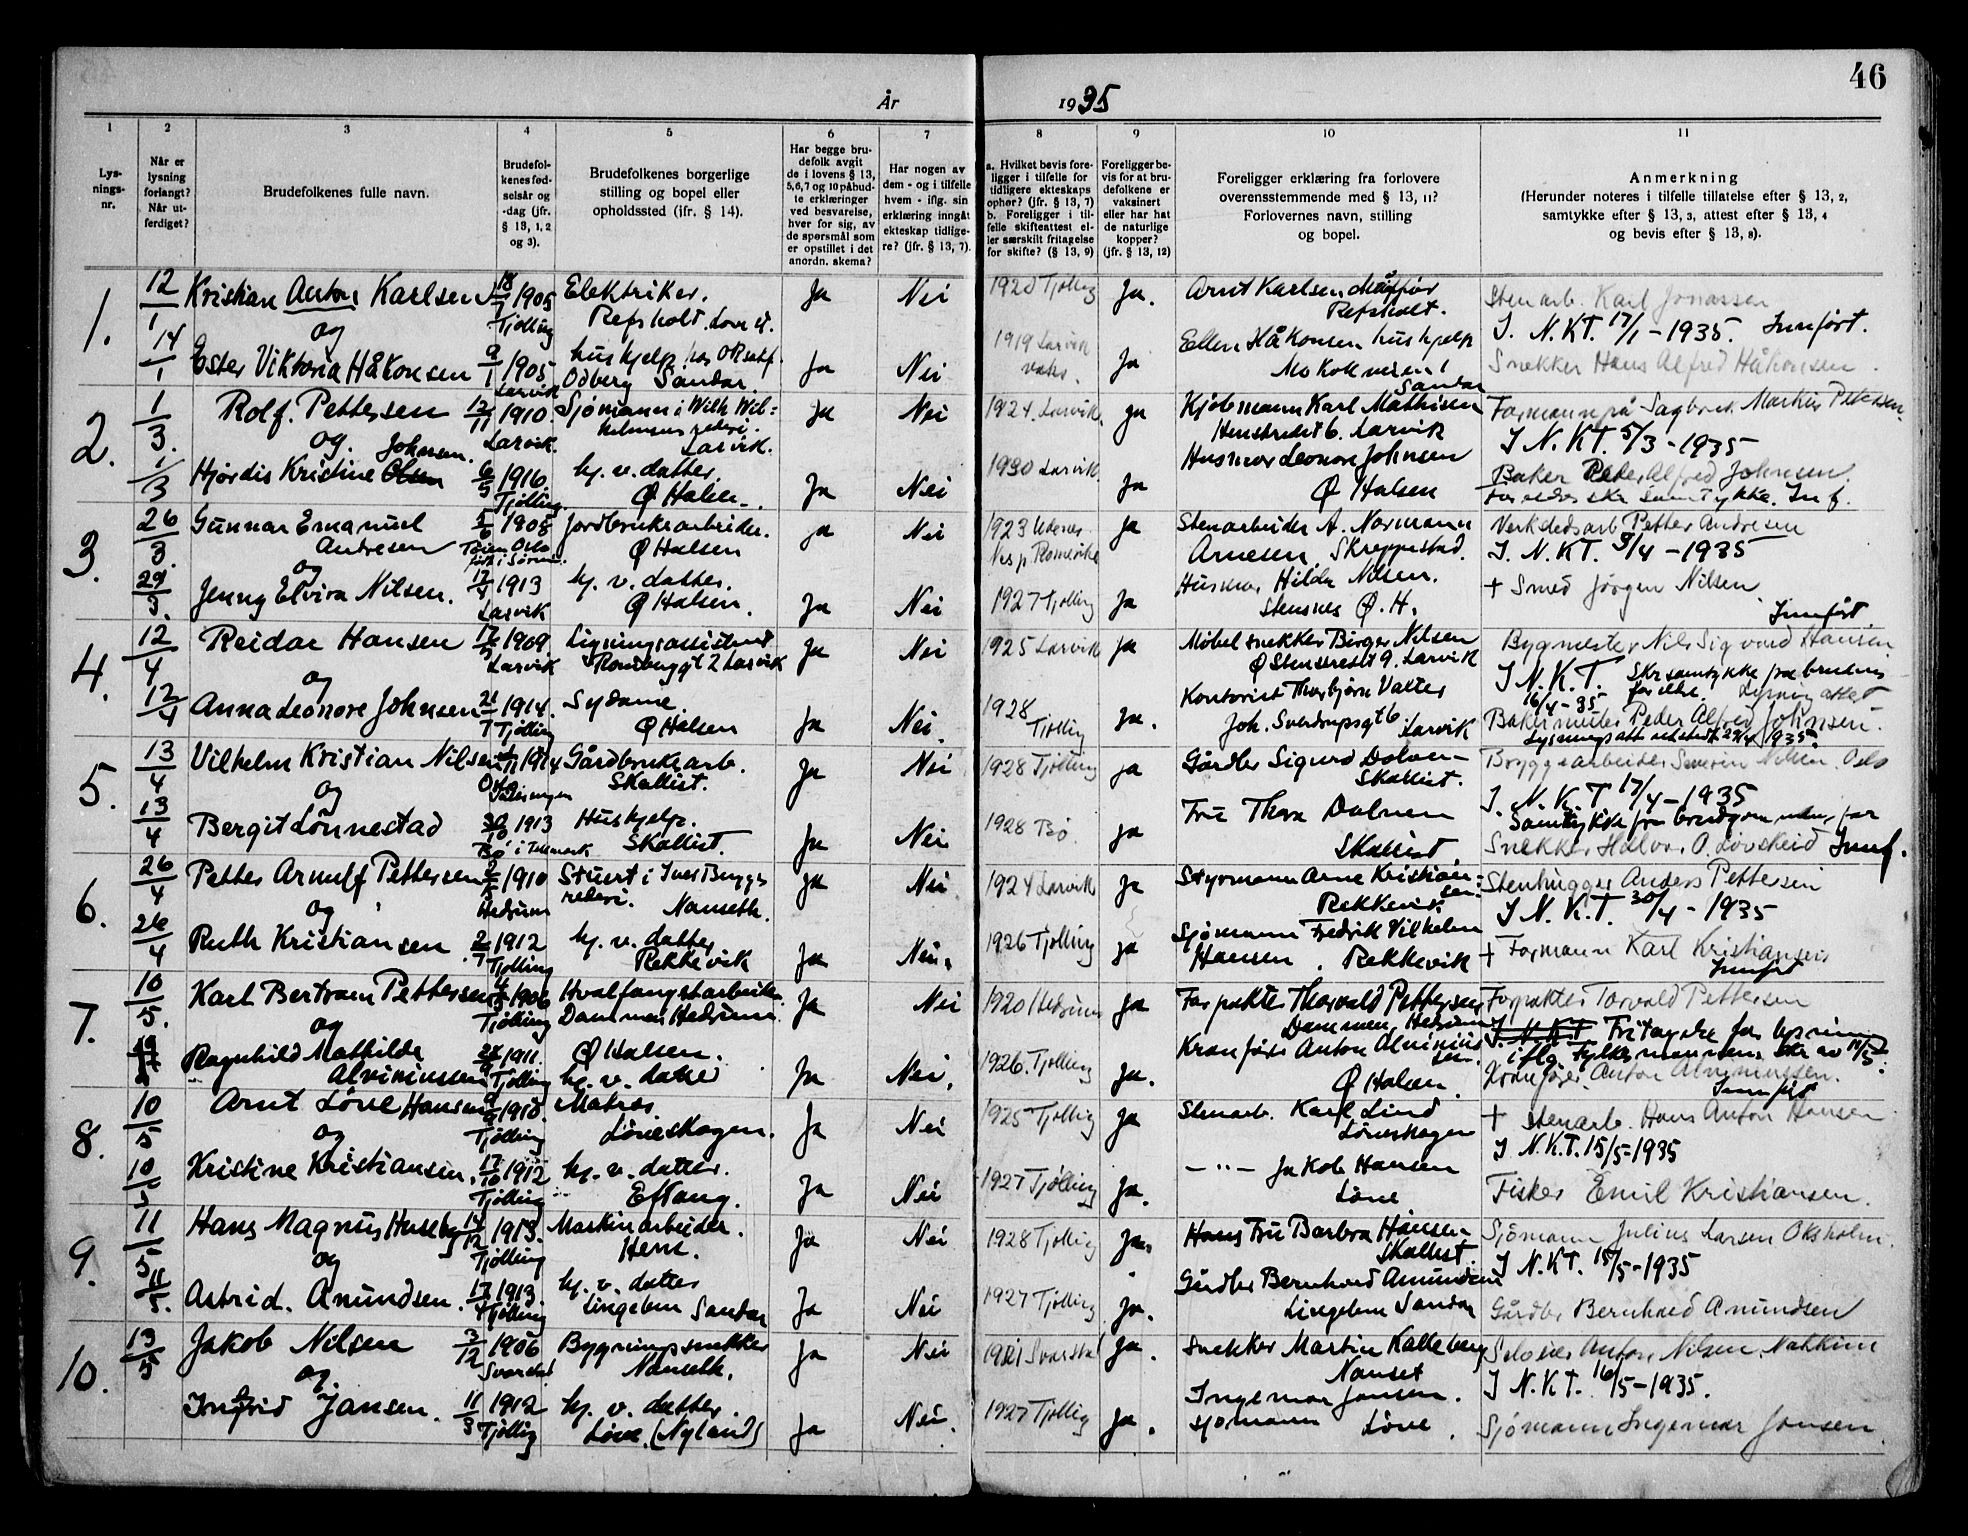 46
År 1935
1 2 3 4 5 6 7 8 9 10 11
Lys-
nings-
nr.
Når er
lysning
forlangt?
Når ut-
ferdiget?
Brudefolkenes fulle navn.
Brudefol-
kenes fød-
selsår og
-dag (jfr.
§ 13, 1, 2
og 3).
Brudefolkenes borgerlige
stilling og bopel eller
opholdssted (jfr. § 14).
Har begge bru-
defolk avgit
de i lovens § 13,
5, 6, 7 og 10 påbud-
te erklæringer
ved besvarelse,
hver for sig, av
de spørsmål som
er opstillet i det
anordn. skema?
Har nogen av
dem - og i tilfelle
hvem - iflg. sin
erklæring inngått
ekteskap tidlige-
re? (jfr. § 13, 7).
a. Hvilket bevis fore-
ligger i tilfelle for
tidligere ekteskaps
ophør? (jfr. § 13, 7)
b. Foreligger i til-
felle skifteattest el-
ler særskilt fritagelse
for skifte? (§ 13, 9)
Foreligger be-
vis for at bru-
defolkene er
vaksinert
eller har hat
de naturlige
kopper?
(jfr. § 13, 12)
Foreligger erklæring fra forlovere
overensstemmende med § 13, 11?
Forlovernes navn, stilling
og bopel.
Anmerkning
(Herunder noteres i tilfelle tillatelse efter § 13, 2,
samtykke efter § 13, 3, attest efter § 13, 4
og bevis efter § 13, 8).
1. 12/1 Kristian Anton Karlsen 18/7 1905 Elektriker. Ja Nei 1920 Tjølling Ja. Arnt Karlsen Stenarb. Karl Jonassen
og Tjølling Refsholt. Refsholt. I. N.K.T. 17/1-1935. Innført.
14/1 Ester Viktoria Håkonsen 9/1 1905 hushjelp Ja Nei 1919 Larvik Ja Ellen Håkonsen hushjelp Snekker Hans Alfred Håkonsen
Larvik Odberg Sandar. Sandar
2. 1/3 Rolf. Pettersen 12/11 1910. Sjømann i Wilh. Wil= Ja Nei 1924. Larvik. Ja Kjøbmann Karl Mathisen Formann på Sagbruk Markus Petersen.
og. Johnsen. Larvik. helmsens rederi. Larvik. 6. Larvik I N.K.T. 5/3-1935
1/3 Hjørdis Kristine Olsen 6/5 1916. hj. v. datter. Ja Nei 1930 Larvik. Ja Husmor Leonore Johnsen Baker Peder Alfred Johnsen.
Tjølling. Ø Halsen. Ø Halsen samtykke. Innf.
3. 26/3. Gunnar Emanuel 5/6 1908 Jordbruksarbeider. Ja Nei 1923 Ja Stenarbeider A. Normann Verkstedsarb. Petter Andresen
Andresen Ø Halsen Romerike Arnesen, Skreppestad. I. N.K.T. 3/4-1935
og
29/3. Jenny Elvira Nilsen. 17/4 1913 hj. v. datter. Ja Nei 1927 Tjølling Ja Husmor Hilda Nilsen. + Smed Jørgen Nilsen
Larvik Ø Halsen. Stensnes Ø. H. Innført.
4. 12/4 Reidar Hansen 17/5 1909 Ligningsassistent Ja Nei 1925 Larvik Ja Møbelsnekker Birger Nilsen Bygmester Nils Sigvard Hansen
og Larvik 2 Larvik Ø Stensredet 9. Larvik I N.K.T. Skr. samtykke fra brudens
12/4 Anna Leonore Johnsen 21/7 1914. Sydame. Ja Nei. 1928 Ja. Kontorist Thorbjørn Valter 16/4-35. foreldre.
Tjølling Ø Halsen Tjølling Joh. Sverdrupsgt 6 Larvik Bakermester Peder Alfred Johnsen.
1935.
5. 13/4 Vilhelm Kristian Nilsen 1914 Gårdbruksarb. Ja Nei 1928 Tjølling Ja Gårdbr Sigurd Dolven Bryggearbeider Severin Nilsen. Oslo
og Skallist. Skallist. I. N.K.T 17/4-1935
13/4 Bergit Lønnestad 30/10 1913 Hushjelp. Ja Nei 1928 Bø Ja Fru Thora Dolven Samtykke fra brudgommens far
Bø i Telemark Skallist. Skallist. Snekker Halvor O. Lövskeid Innf.
6. 26/4 Petter Arnulf Pettersen 1910 Stuert i Ja Nei 1924 Larvik Ja Styrmann Arne Kristian- Stenhugger Anders Pettersen
og Hedrum rederi. Nanseth. sen. Rekkevik. I N.K.T. 30/4-1935
26/4 Ruth Kristiansen. 2/7 1912 hj. v. datter Ja Nei. 1926 Tjølling Ja Sjømann Fredrik Vilhelm + Formann Karl Kristiansen
Tjølling Rekkevik Hansen. Rekkevik Innført
7. 10/5. Karl Bertram Pettersen 1906 Hvalfangstarbeider Ja Nei 1920 Hedrum Ja Forpakter Thorvald Pettersen Forpakter Torvald Pettersen
og Tjølling Dammen Hedrum. Dammen, Hedrum I. N.K.T Fritagelse for lysning
Ragnhild Mathilde 1911. Ø Halsen. Ja Nei. 1926 Tjølling Ja. Kranfører Anton Alvinius iflg. Fylkesmannens skr. av
Alviniussen Tjølling hj. v. datter sen. Ø Halsen Kranfører Anton Alviniussen.
Innført
8. 10/5 Arnt Løve Hansen 1910 Matros. Ja Nei 1925 Tjølling Ja Stenarb. Karl Lind + Stenarb. Hans Anton Hansen
og Tjølling Løveskogen. Løveskogen I N.K.T. 15/5-1935
10/5 Kristine Kristiansen. 17/10 1912 hj. v. datter. Ja Nei 1927 Tjølling Ja. — " — Jakob Hansen Fisker Emil Kristiansen.
Tjølling Eftang. Løve
9. 11/5 Hans Magnus Huseby 14/12 1913. Maskinarbeider. Ja Nei 1928 Tjølling Ja. Hans Fru Barbra Hansen Sjømann Julius Larsen Oksholm.
og Tjølling Hem. Skallist I N.K.T. 15/5-1935
11/5. Astrid. Amundsen. 17/4 1913. hj. v. datter Ja Nei 1927 Tjølling Ja. Gårdbr Bernhard Amundsen Gårdbr Bernhard Amundsen
Tjølling Lingelem Sandar Lingelem Sandar
10. 13/5 Jakob Nilsen 3/12 1906 Bygningssnekker Ja Nei 1921 Svarstad Ja. Snekker Martin Kalleberg Anton Nilsen,
og. Svarstad Nanseth. Nanset I N.K.T. 16/5-1935.
Ingfrid Jansen. 11/3 1912 hj. v. datter Ja Nei. 1927 Tjølling Ja. Ingemar Jansen. Sjømann Ingemar Jansen.
Tjølling Løve. (Nyland) sjømann Løve.